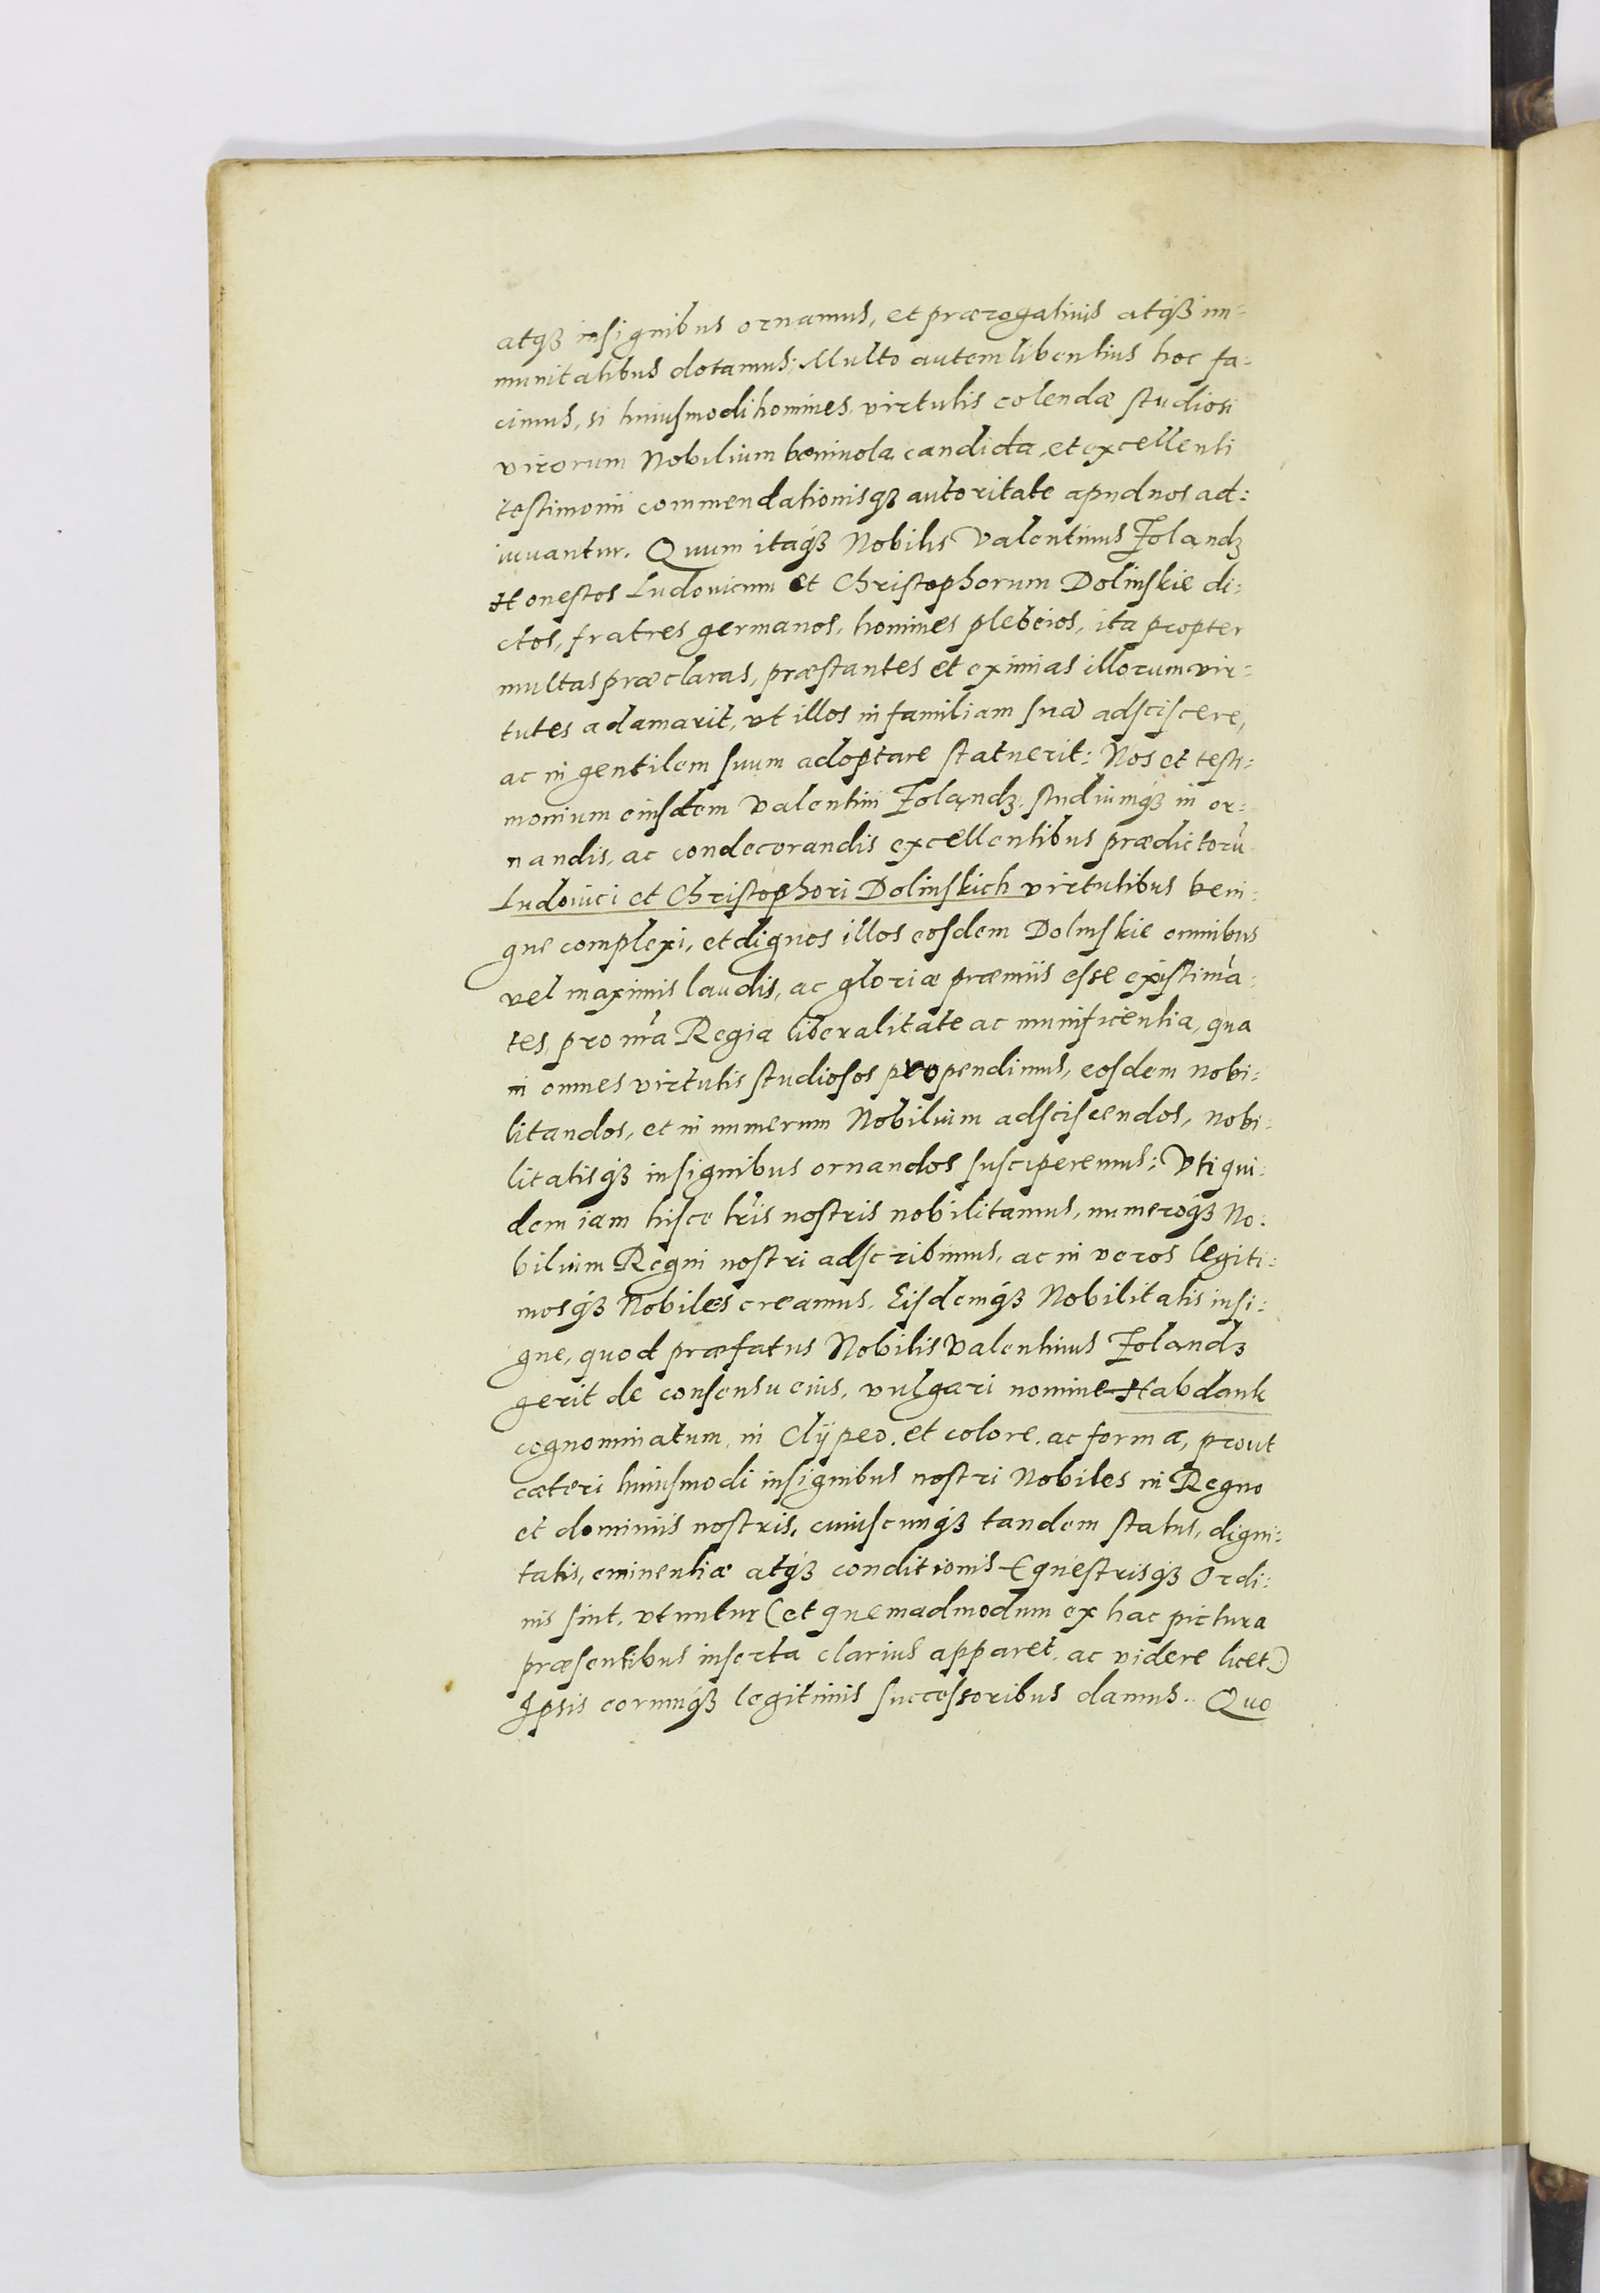 atqȝ insignibus ornamus, et prærogatiuis atqȝ im-
munitatibus dotamus; Multo autem libentius hoc fa-
cimus, si huiusmodi homines, virtutis colendæ studiosi
virorum Nobilium beniuola, candida, et excellenti
testimonii commendationisqȝ autoritate apud nos ad:
iuuantur. Quum itaqȝ Nobilis Valentinus Folandȝ
Honestos Ludouicum et Christophorum Dolinskie di:
ctos, fratres germanos, homines plebeios, ita propter
multas præclaras, præstantes et eximias illorum vir-
tutes adamarit, vt illos in familiam suã adsciscere,
ac in gentilem suum adoptare statuerit: Nos et testi:
monium eiusdem Valentini Folandȝ, studiumqȝ in or:
nandis, ac condecorandis excellentibus prædictorũ
Ludouici et Christophori Dolinskich virtutibus beni:
gne complexi, et dignos illos eosdem Dolinskie omnibus
vel maximis laudis, ac gloriæ præmiis esse existimã:
tes, pro nr̃a Regia liberalitate ac munificentia, qua
in omnes virtutis studiosos propendimus, eosdem nobi:
litandos, et in numerum Nobilium adsciscendos, nobi:
litatisqȝ insignibus ornandos susciperemus; Vti qui:
dem iam hisce lr̃is nostris nobilitamus, numeroqȝ No:
bilium Regni nostri adscribimus, ac in veros legiti:
mosqȝ Nobiles creamus, Eisdemqȝ Nobilitatis insi:
gne, quod præfatus Nobilis Valentinus Folandȝ
gerit de consensu eius, vulgari nomine Habdank
cognominatum, in Clÿpeo, et colore, ac forma, prout
cæteri huiusmodi insignibus nostri Nobiles in Regno
et dominiis nostris, cuiuscunqȝ tandem status, digni:
tatis, eminentiæ atqȝ conditionis Equestrisqȝ Ordi:
nis sint, vtuntur (et quemadmodum ex hac pictura
præsentibus inserta clarius apparet, ac videre licet.)
Ipsis eorumqȝ legitimis successoribus damus. Quo